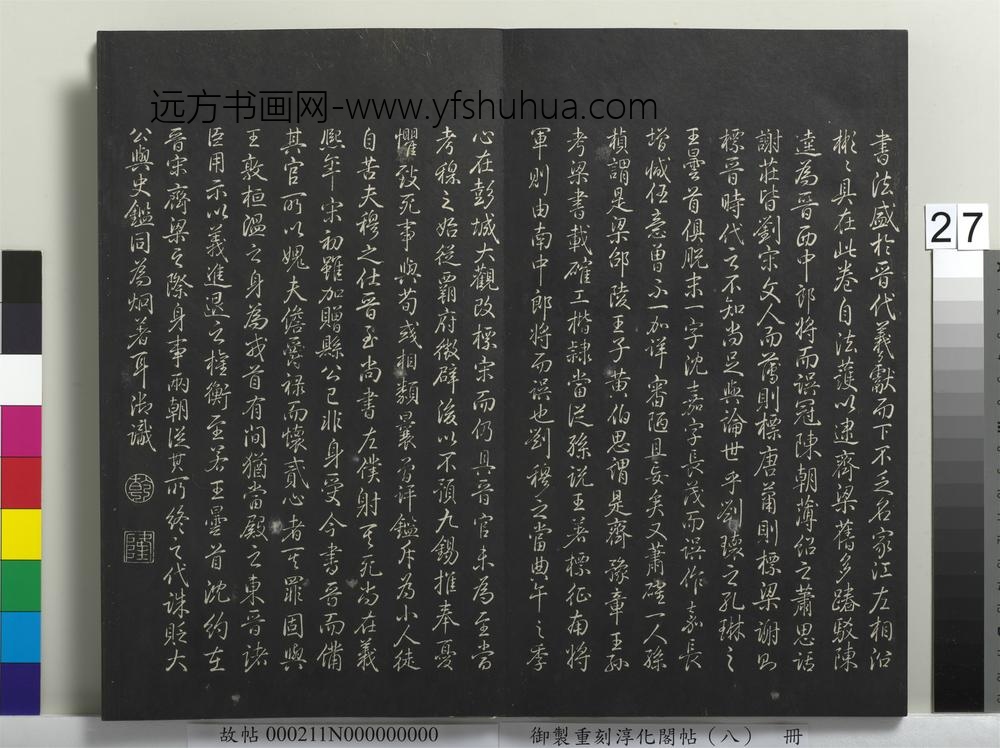 远方书画网-www.yfshuhua.com
書法盛於晉代羲獻而下不乏名家江左相沿
彬彬具在此卷自法護以逮齊梁舊多踳駁陳
逵為晉西中郎將而誤冠陳朝薄紹之蕭思話
謝莊皆劉宋文人而薄則標唐蕭則標梁謝則
標晉時代之不知尚足與論世乎劉瓌之孔琳之
王曇首俱脫末一字沈嘉字長茂而誤作嘉長
增減任意曾不一加詳審陋且妄矣又蕭確一人孫
楨謂是梁邵陵王子黃伯思謂是齊豫章王孫
考梁書載確工楷隸當從孫說王著標征南將
軍則由南中郎將而誤也劉穆之當典午之季
心在彭城大觀改標宋而仍具晉官未為至當
考穆之始從霸府徵辟後以不預九錫推奉憂
懼致死事與荀彧相類曩曾評鑑斥為小人徒
自苦夫穆之仕晉至尚書左僕射其死尚在義
熙年宋初雖加贈縣公已非身受今書晉而備
其官所以媿夫儋爵祿而懷貳心者其罪固與
王敦桓溫之身為戎首有間猶當殿之東晉諸
臣用示以義進退之權衡至若王曇首沈約在
晉宋齊梁之際身事兩朝從其所終之代誅貶大
公與史鑑同為炯著耳御識
乾
隆
27
故帖 000211N000000000
御製重刻淳化閣帖（八） 冊